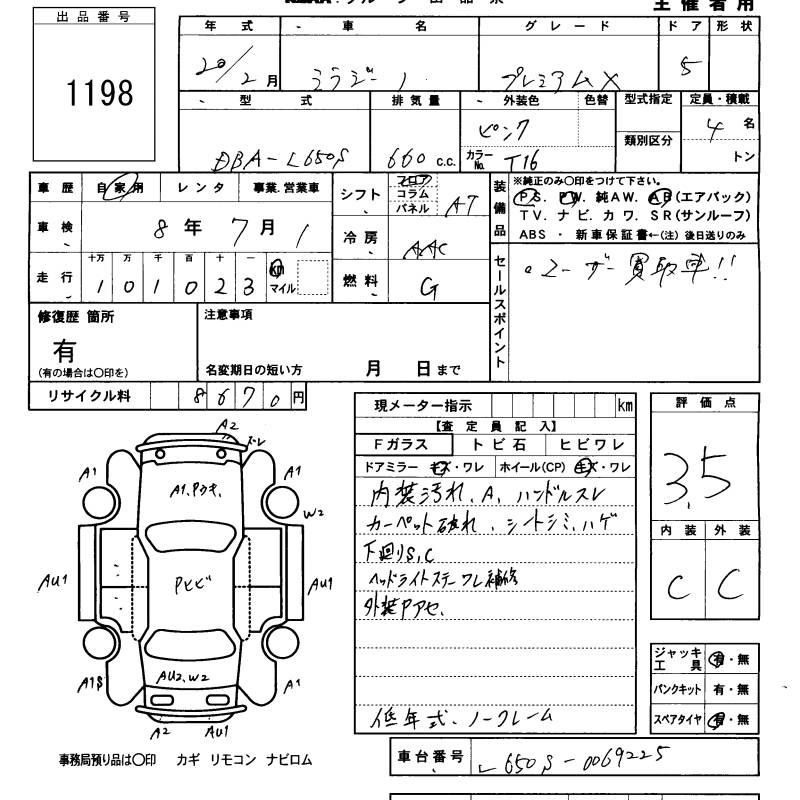 主催者用
出品番号
1198
年式 車名 グレード ドア 形状
20/2月 ミラジーノ プレミアムX 5
型式 排気量 外装色 色替 型式指定 定員・積載
DBA-L650S 660 c.c. ピンク 類別区分 4名
カラーNo. T16 トン
車歴 自家用 レンタ 事業.営業車
車検 8年7月1
走行 十万 万 千 百 十 一 km マイル
1 0 1 0 2 3
シフト フロア コラム パネル AT
冷房 AAC
燃料 G
装備品
※純正のみ○印をつけて下さい。
P.S. P.W. 純AW. AB(エアバック)
TV. ナビ. カワ. SR(サンルーフ)
ABS ・ 新車保証書←(注) 後日送りのみ
セールスポイント
・ユーザー買取車!!
修復歴 箇所
有
(有の場合は○印を)
注意事項
名変期日の短い方 月 日まで
リサイクル料 8670円
現メーター指示 km
【査定員記入】
Fガラス トビ石 ヒビワレ
ドアミラー キズ・ワレ ホイール(CP) キズ・ワレ
内装汚れ、A、ハンドルスレ
カーペット破れ、シートシミ、ハゲ
下廻りS,C
ヘッドライトステーワレ補修
外装Pアセ.
低年式、ノークレーム
評価点
3.5
内装 外装
C C
ジャッキ工具 有・無
パンクキット 有・無
スペアタイヤ 有・無
A2 スレ
A1 A1.Pウキ. A1
W2
AU1 Pヒビ AU1
AU2.W2
A1S A1
A2 AU1
事務局預り品は○印 カギ リモコン ナビロム
車台番号 L650S-0069225